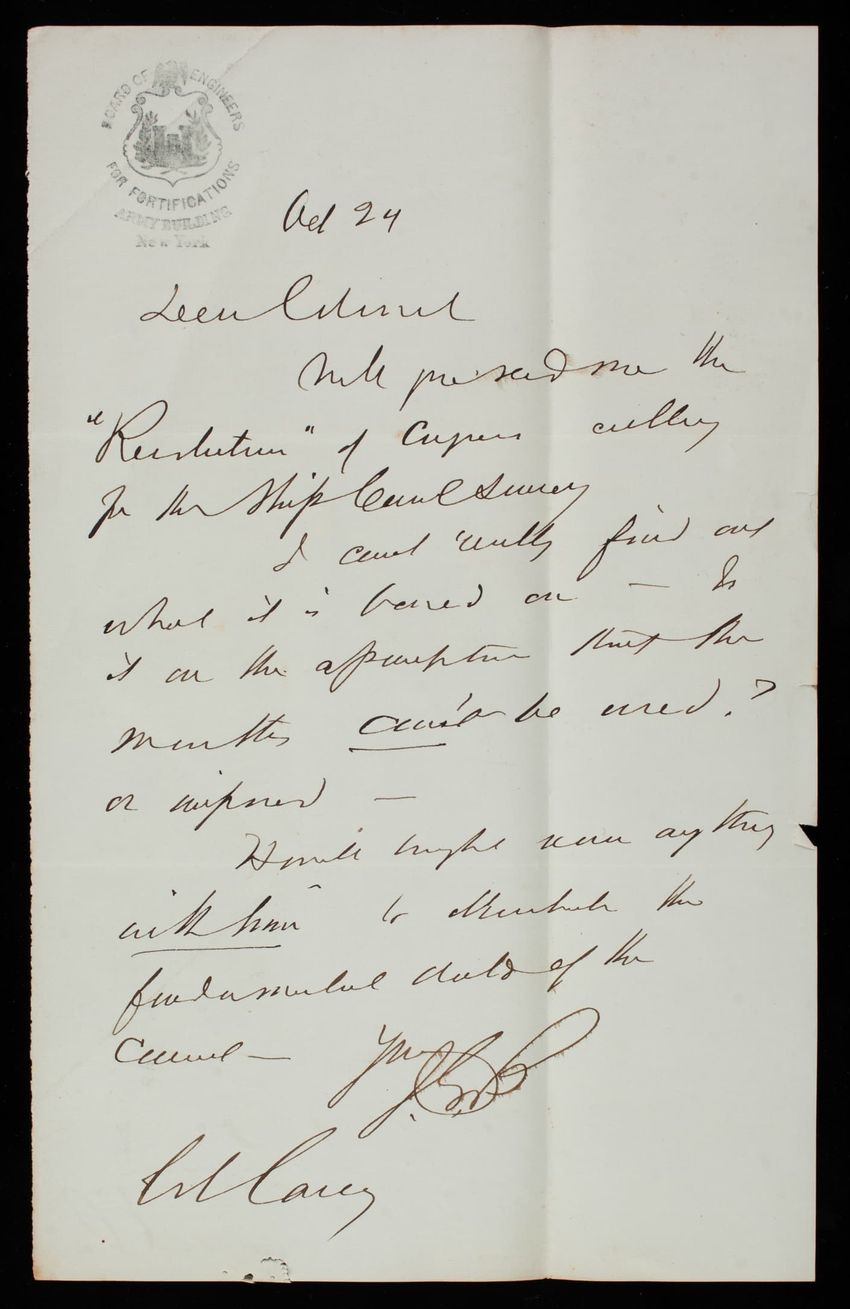 BOARD OF ENGINEERS
FOR FORTIFICATIONS
ARMY BUILDING
New York
Oct 24
Dear Colonel
me the
"Resolution" of Congress calling
for the Ship Canal Survey
I cant really find out
what it is based on — Is
it on the assumption that the
months can't be used?
or
Howell might anything
with him to the
fundamental data of the
Canal — Yrs
Col Casey